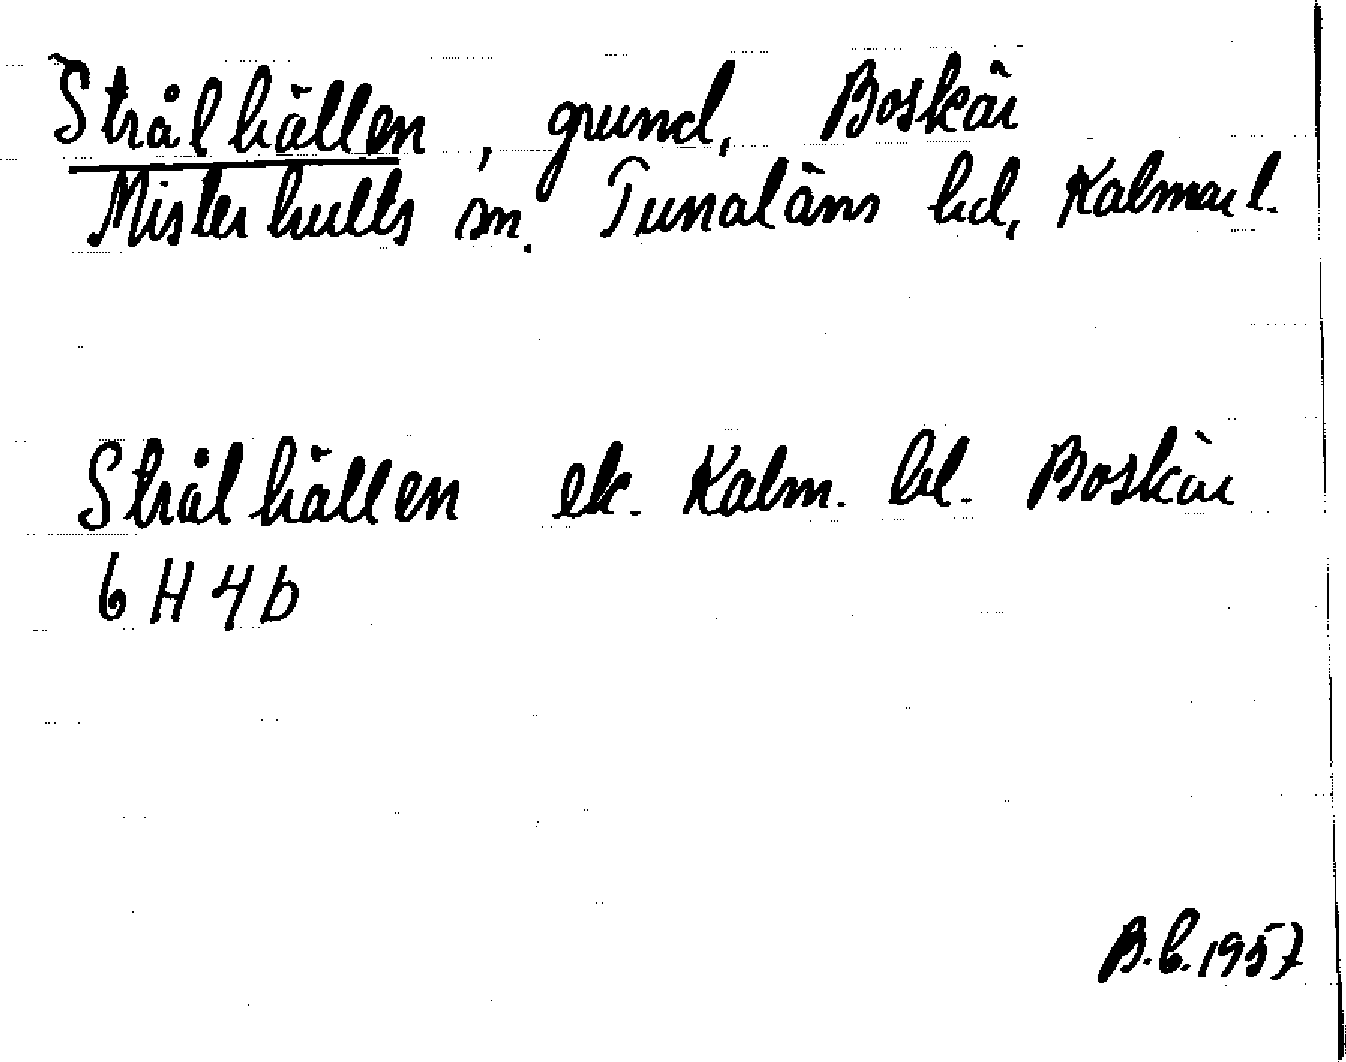 Strålhällen, grund, Boskär
Misterhults sn. Tunaläns hd, Kalmar l.
Strålhällen ek. Kalm. bl. Boskär
6 H 4 b
B.b. 1957